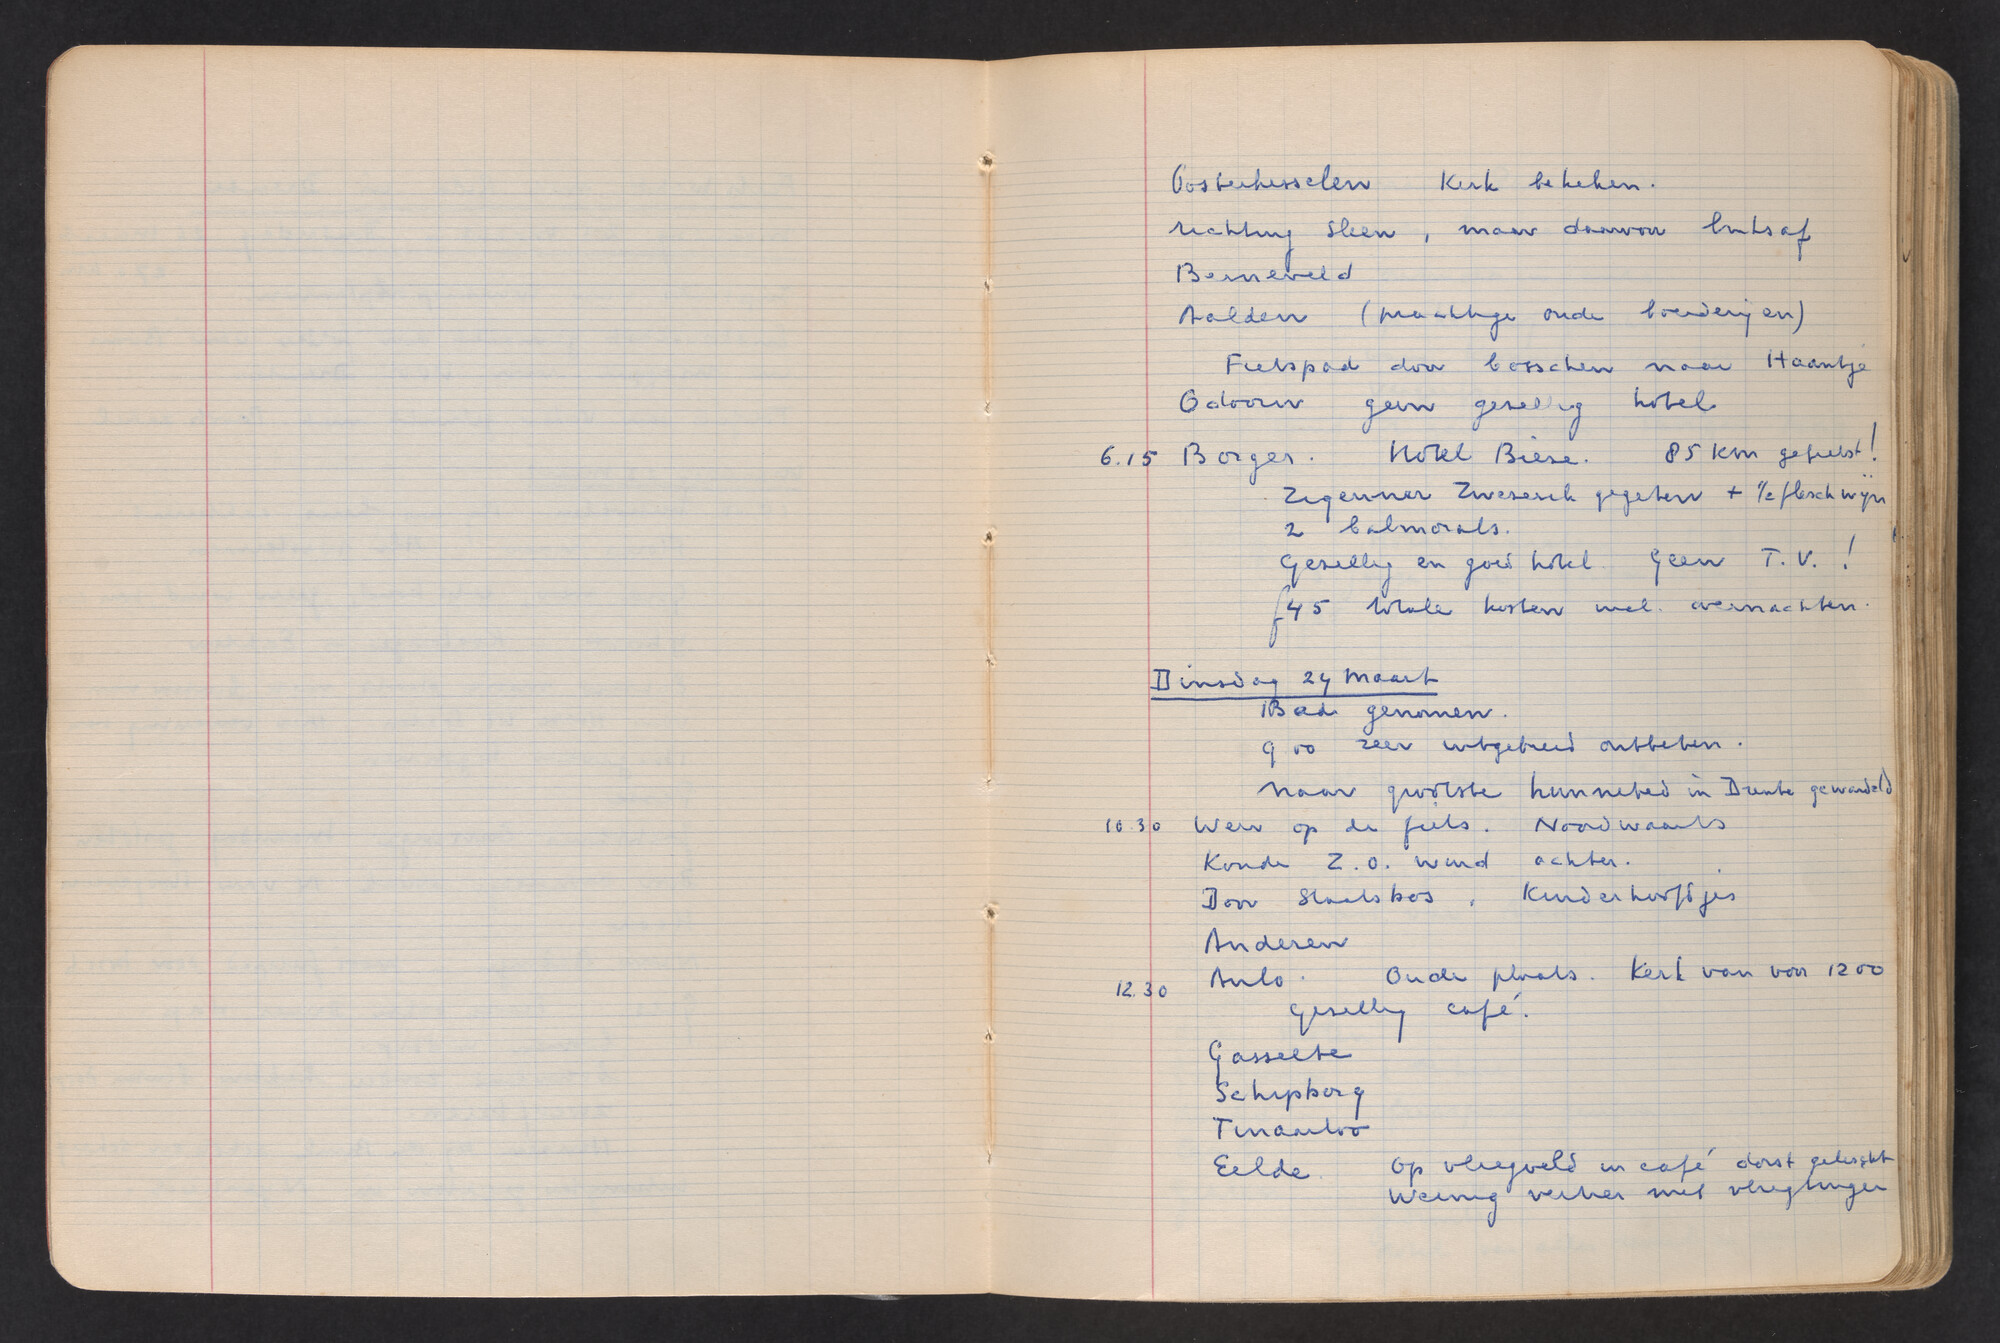 Oosterhesselen Kerk bekeken.
richting Sleen, maar daarvoor linksaf
Benneveld
Aalden (prachtige oude boerderijen)
Fietspad door bosschen naar Haantje
Odoorn geen gezellig hotel
6.15 Borger. Hotel Bieze. 85 km gefietst!
Zigeuner gegeten + ½ flesch wijn
2 balmorals.
Gezellig en goed hotel. Geen T.V.!
f45 totale kosten incl. overnachten.
Dinsdag 24 Maart
Bad genomen.
9 00 zeer uitgebreid ontbeten.
naar grootste hunnebed in Drente gewandeld
10.30 Weer op de fiets. Noordwaarts
Koude Z.O. wind achter.
Door Staatsbos, Kinderhoofdjes
Anderen
12.30 Anlo. Oude plaats. Kerk van voor 1200
gezellig café.
Gasselte
Schipborg
Tinaarloo
Eelde. Op vliegveld in café dorst gelescht
Weinig verkeer met vliegtuigen